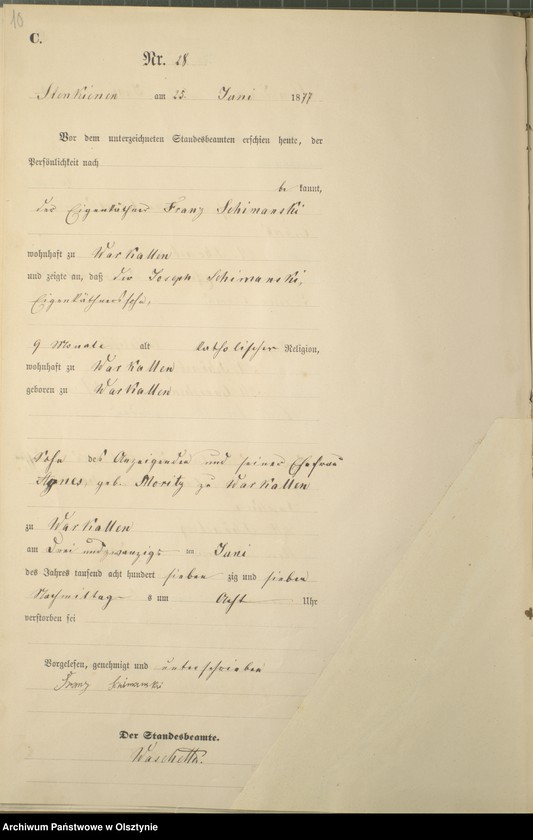 10
C.
Nr. 28
am 25. Juni 1877
Vor dem unterzeichneten Standesbeamten erschien heute, der
Persönlichkeit nach
be kannt,
der Eigenkäthner Franz Schimanski
wohnhaft zu Warkallen
und zeigte an, daß der Joseph Schimanski,
Eigenkäthnersohn,
9 Monate alt katholischer Religion,
wohnhaft zu Warkallen
geboren zu Warkallen
Sohn des Anzeigenden und seiner Ehefrau
Agnes geb. Moritz zu Warkallen
zu Warkallen
am drei und zwanzigs ten Juni
des Jahres tausend acht hundert sieben zig und sieben
Nachmittag s um Acht Uhr
verstorben sei
Vorgelesen, genehmigt und unterschrieben
Franz Schimanski
Der Standesbeamte.
Archiwum Państwowe w Olsztynie